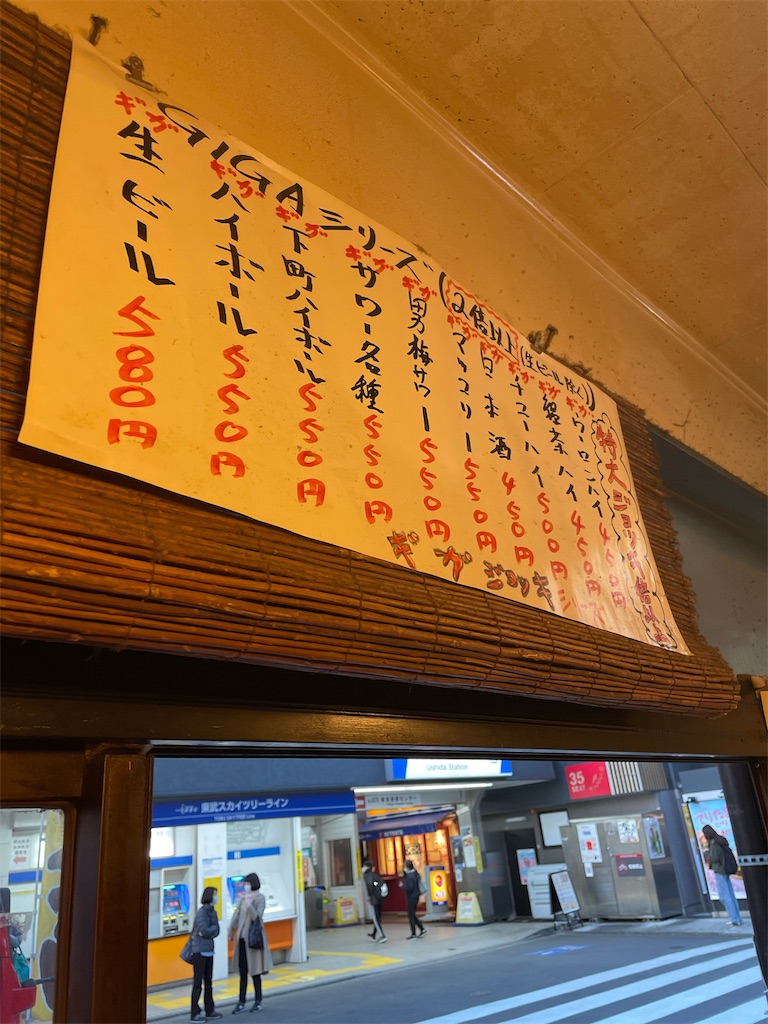 GIGAシリーズ(2倍以上(生ビール除く))
ギガ
生ビール 580円
ギガ
ハイボール 550円
ギガ
下町ハイボール 550円
ギガ
サワー各種 550円
ギガ
男梅サワー 550円
ギガ
マッコリー 550円
ギガ
日本酒 450円
ギガ
チューハイ 500円
ギガ
緑茶ハイ 450円
ギガ
ウーロンハイ 450円
特大ジョッキ
ギガジョッキ
東武スカイツリーライン
TOBU SKYTREE Line
Ushida Station
35
SEAT